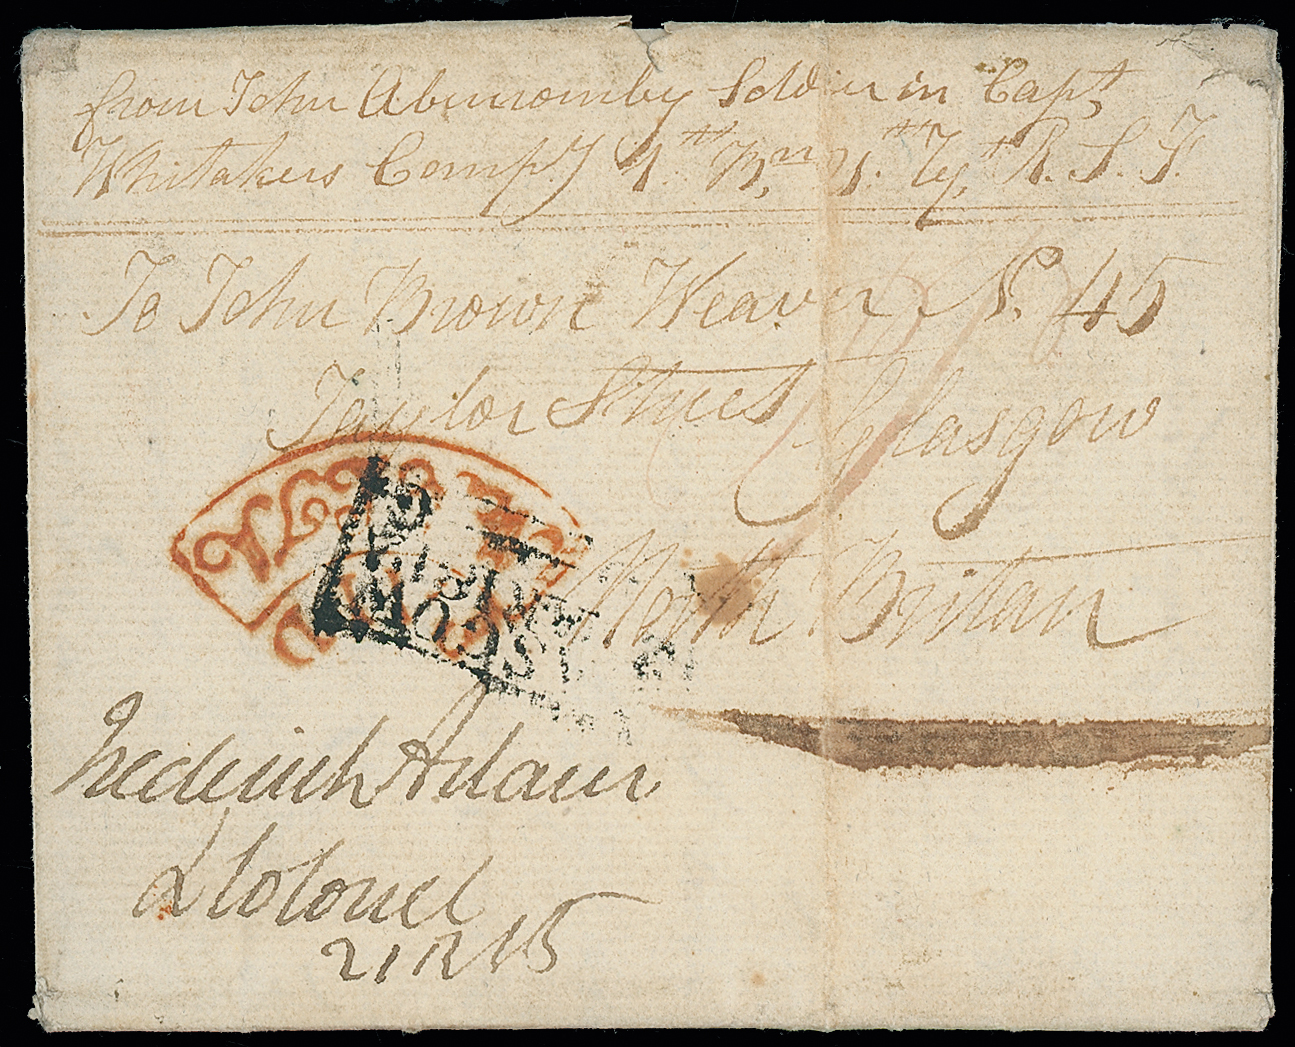 from John Abercromby Soldier in Capt
Whitakers Compy 4th Bn 21st R. S. F.
To John Brown Weaver N. 45
Taylor Street Glasgow
North Britan
Frederick Adam
Lt Colonel